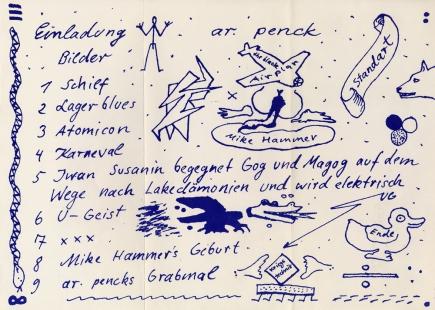 Einladung
ar. penck
Bilder
1 Schilf
2 Lagerblues
3 Atomicon
4 Karneval
5 Iwan Susanin begegnet Gog und Magog auf dem
Wege nach Lakedämonien und wird elektrisch
6 U-Geist
17 x x x
8 Mike Hammer's Geburt
9 ar. pencks Grabmal
Air Plan
Mike Hammer
Standart
UG
Ende
8